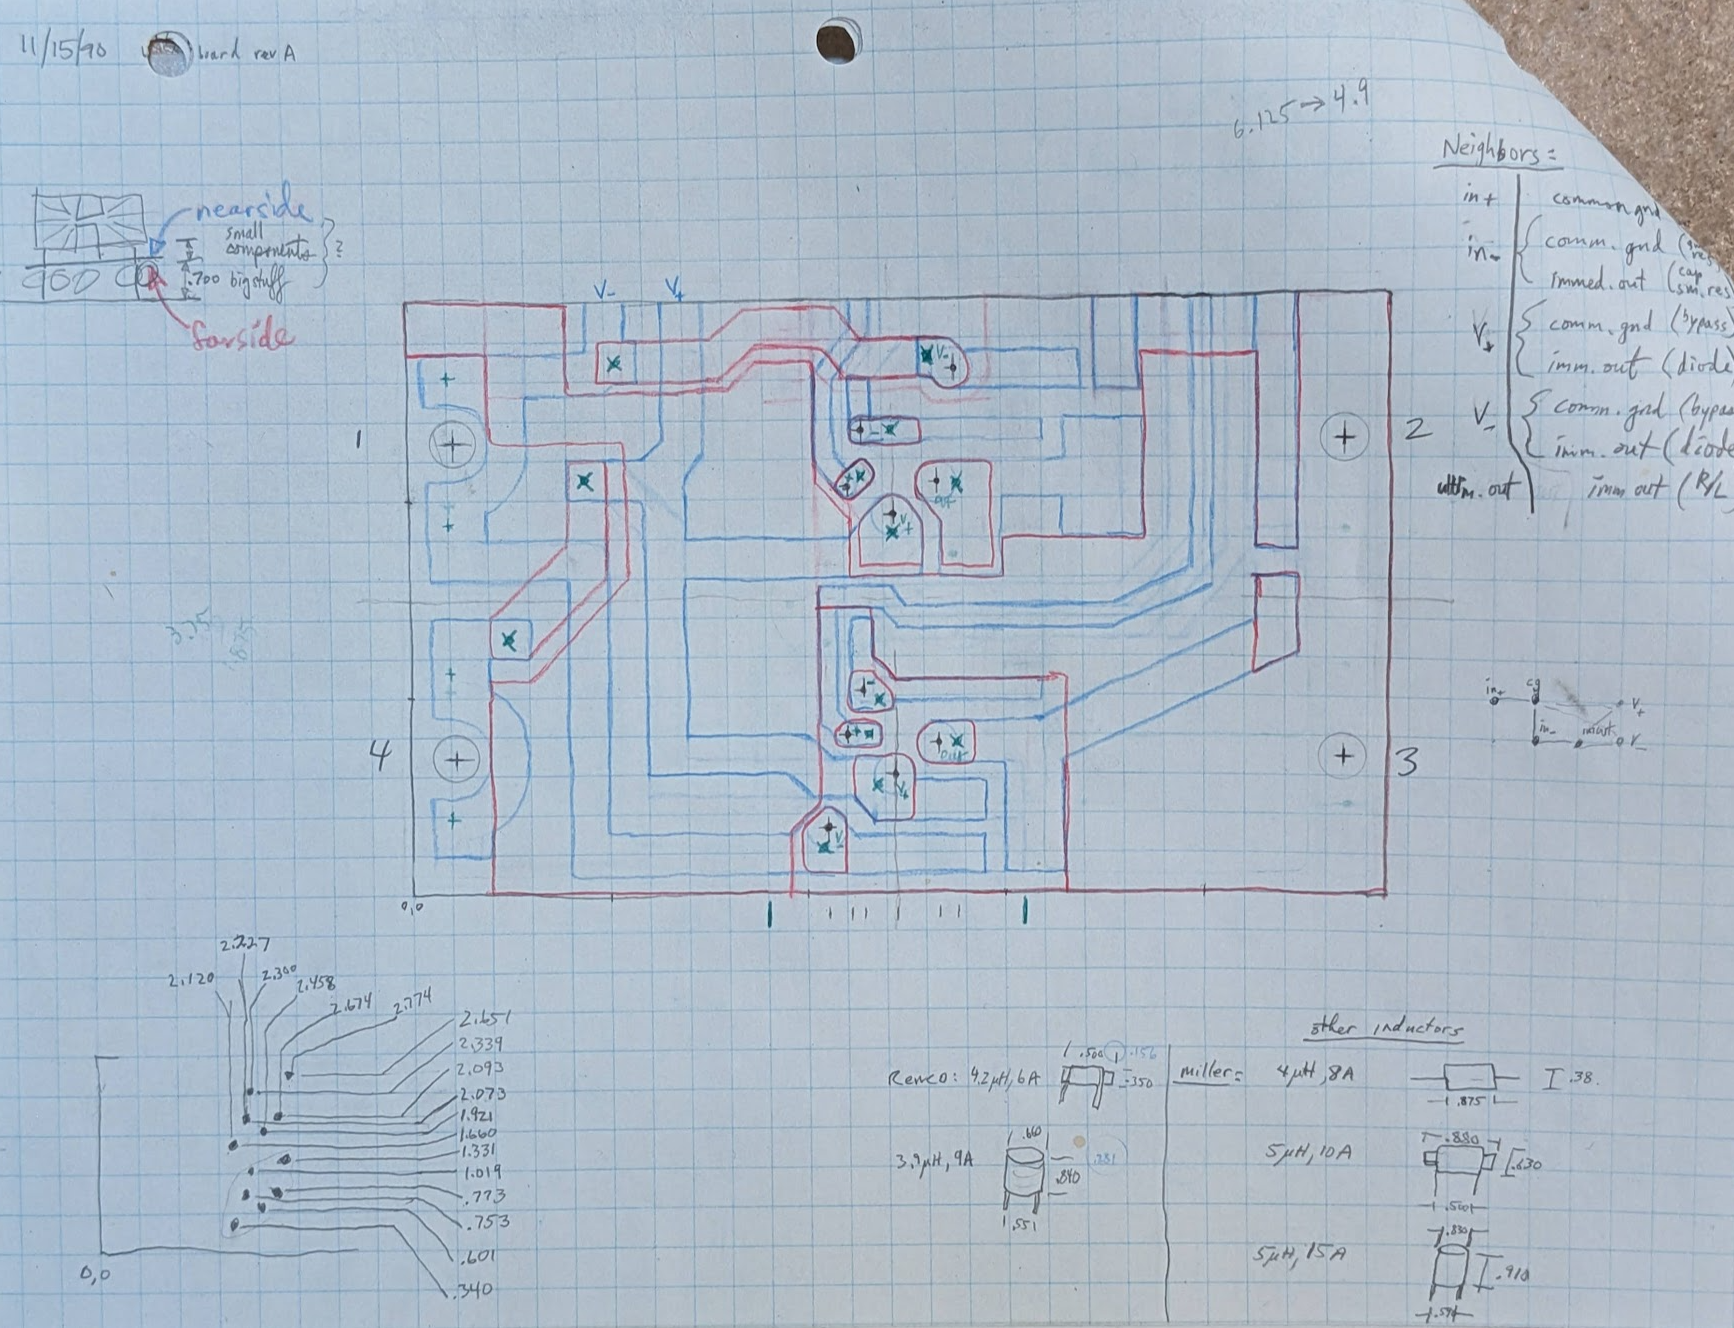 11/15/90 board rev A
6.125→4.9
nearside
small
components
?
.700 big stuff
farside
Neighbors=
in+ common gnd
in- comm. gnd
immed. out (cap
sm. res
V+ comm. gnd (bypass)
imm. out (diode
V- comm. gnd (bypas
imm. out (diode
ultim. out imm out (R/L
V- V+
V-
1
2
+
-
+
V+
out
in+ cg V+
in- imout V-
-
+
out
V+
V-
4
3
0,0
2.227
2.120 2.300 2.458
2.674 2.774
2.651
2.339
2.093
2.073
1.921
1.660
1.331
1.019
.773
.753
.601
.340
0,0
other inductors
Renco: 4.2μH, 6A .500 .156
.350
miller= 4μH, 8A .38
.875
3.9μH, 9A .660
.840
.551
5μH, 10A .880
.630
.500
5μH, 15A .830
.910